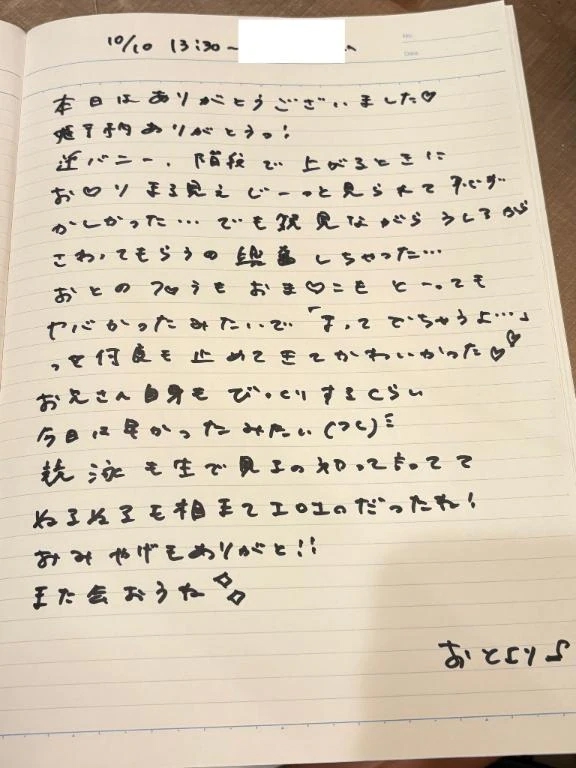 10/10 13:30~
No.
Date
本日はありがとうございました♡
姫予約ありがとうっ!
逆バニー、階段で上がるときに
お♡りまる見えじーっと見られて
かしかった…でも鏡見ながらうしろから
さわってもらうの興奮しちゃった…
おとのフ♡うもおま♡こもとーっても
ヤバかったみたいで「まってでちゃうよ…」
って何度も止めてきてかわいかった♡♡
お兄さん自身もびっくりするくらい
今日は早かったみたい(つC)
競泳も生で見るの初って言ってて
ぬるぬるも相まてエロエロだったね!
おみやげもありがと!!
また会おうね
おとより♪